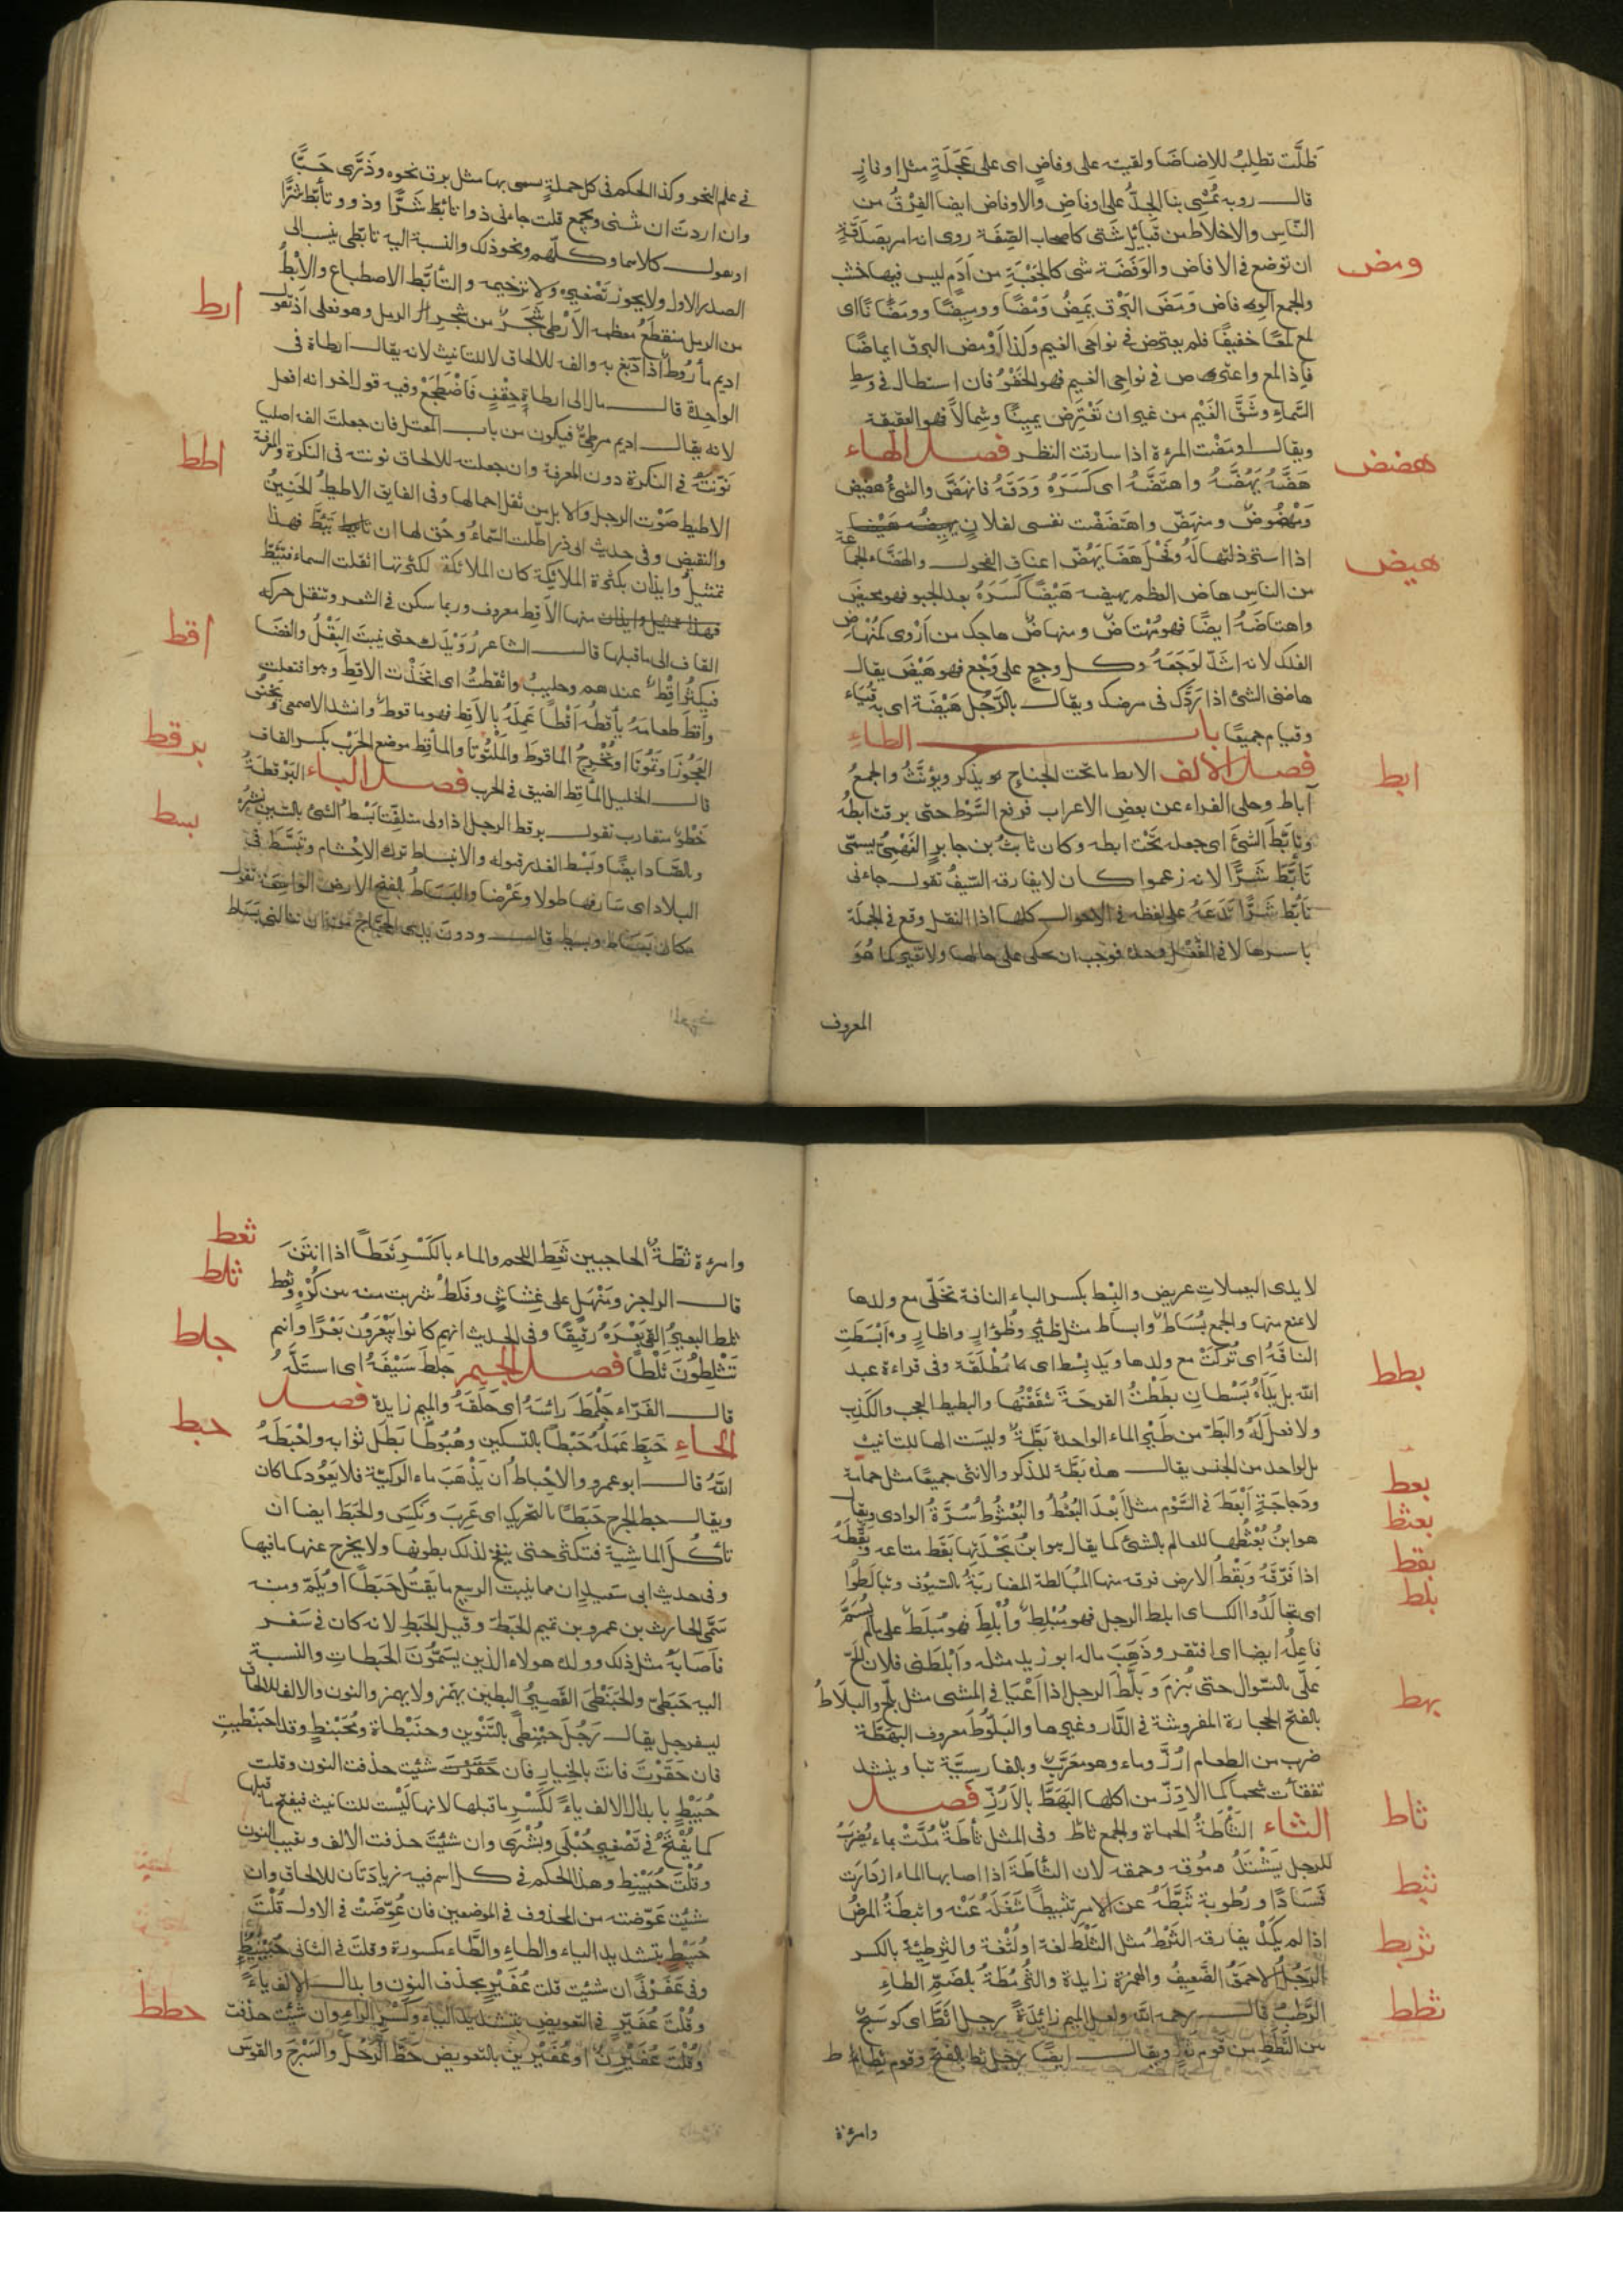 ظَلَّت تطلِبُ للاِضاضَا ولقيته على وفاضٍ اى على عَجَلَةٍ مثل اوفازٍ
قال روبه يُمْشِى بنا الجِدُّ على اوفاضٍ والاوفاض ايضا الفِرْقُ من
النّاسِ والاخلاط من قبائِل شتى كاصحاب الصِّفَة روى انه امر بصَدَقَةٍ
ومض
ان توضع فى الافاض والوَفَضَة شى كالجَعْبَةِ من اَدَمٍ ليس فيها خشب
والجمع الوفاض وَمَضَ البَرْق يَمِضُ وَمْضًا ووَمِيضًا وومَضَانًا اى
لمع لمعًا خفيفًا فلم يعترض فى نواحى الغيم وكذا اَوْمض البرق ايماضًا
فاذا لمع واعترض فى نواحى الغيم فهو الخَفْوُ فان استطال فى وسط
السَّماءِ وشَقَّ الغَيْم من غير ان تَعْتَرِض يمينًا وشِمالاً فهو العقيقة
ويقال اومَضْت المرءة اذا سارقت النظر فصل الهاء
هضض
هَضَّهُ يَهُضّهُ واهتَضَّهُ اى كَسَرَهُ وَدَقّهُ فانهَضَّ والشئُ هضِيض
وَمَهْضُوضٌ ومنهَضّ واهتَضَضْت نفسى لفلانٍ
هيض
اذا استزدتها لَهُ وفَحْل هَضّا يَهُضّ اعناق الفحول والهَضَّاء الجماعة
من الناسِ هاض العظم يهيضه هَيْضًا كَسَرَهُ بعد الجبو فهو مهيض
واهتاضَهُ ايضًا فهو مُهْتاضٌ ومنهاضٌ هاجك من اَرْوى كمُنْهاض
الفكك لانه اشَدّ لوَجَعَهُ وكل وجع على وَجْع فهو هَيْضَ يقال
هاضنى الشئ اذا رَدَّك فى مرضك ويقال بالرَّجُل هَيْضَة اى به قُيَاء
وقيام جميعًا باب الطاءِ
ابط
فصل الالف الابط ماتحت الجناحِ يُذكر ويؤنَّثُ والجمعُ
آباط وحكى الفراء عن بعض الاعراب فرفع السَّوْط حتى برقت ابطهُ
وتأبّطَ الشئَ اى جعله تَحْت ابطه وكان ثابتُ بن جابرٍ الفَهْمِىُّ يسمّى
تأبّط شَرًّا لانه زعموا كان لايفارقه السّيفُ تقول جاءنى
تأبّط شَرًّا تَدَعَهُ على لفظه فى الاحوال كلها اذا النقل وقع فى الجملة
باسرها لا فى الفعل وحده فوجب ان تحكى على حالها ولا تغير كما هُوَ
المعروف
فى علم النحو وكذا الحكم فى كل جملةٍ يسمى بها مثل برق نحوه وذَرَّى حَبًّا
وان اردتَ ان تثنى وتجمع قلت جاءنى ذوا تابّط شَرًّا وذوو تأبّط شرًّا
او تقول كلاهما وكلّهم ونحو ذلك والنسبة اليه تابّطى ينسب الى
الصدر الاول ولايجوز تَصْغيره ولا ترخيمه والتأبّط الاضطباع والاِبْطُ
ارط
من الرمل منقطَعُ معظمه الاَرْطى شَجَرٌ من شَجر الرمل وهو فعلى اذ تقول
اديم مأرُوطٌ اذا دُبغ به والفه للالحاق لا للتانيث لانه يقال ارطاة فى
الواحِدة قال مال الى ارطاةِ حِقْفٍ فَاضْطَجَعْ وفيه قول اخر انه افعل
لانه يقال اديم مرطىّ فيكون من باب المعتل فان جعلتَ الفه اصليا
اطط
نَوّنتَهُ فى النكرة دون المعرفة وان جعلته للالحاق نونته فى النكرة والمعرفة
الاطيط صَوْت الرحل والابل من ثقل احمالها وفى الفايق الاطيطُ الحَنِينُ
والنقيض وفى حديث ابى ذر اطّلت السّماءُ وحُق لها ان تئط فهذا
تمثيلٌ وايذان بكثرة الملائكة كان الملائكة لكثرتها اثقلت السماء فتئط
اقط
منها الاَقِط معروف وربما سكن فى الشعر وتنقل حركة
القاف الى ماقبلها قال الشاعر رُوَيْدَك حتى ينبتَ البَقْلُ والغضَا
فيكثُر اقْطٌ عندهم وحليبُ وائقطتُ اى اتخَذْت الاقِطَ وهو افتعلت
واَقطَ طعامَهُ يأقِطُه اَقْطًا عَمِلَهُ بالاَقِطِ فهو ماقوطٌ وانشد الاصمعى
برقط
والمأقِط موضع الحَرْب بكسر القاف
قال الخليل المأقِط الضيق فى الحرب فصل الباء البَرْقَطَةُ
بسط
خَطْوٌ متقارب تقول برقط الرجل اذا ولى متلفِّتا بَسْطُ الشئ بالسّين نشرُهُ
وبالصّاد ايضًا وبَسْط العُذر قبوله والانبساط ترك الاحتشام وتَبَسَّطَ فى
البلاد اى سَارَ فيها طولا وعَرْضا والبَسَاطُ بالفتح الارض الواسعَة تقول
مكان بَسَاط وبسيط قال ودون يدى الحجّاج من ان تنالنى بَسَاط
لايدى اليعملاتِ عريض والبِسْط بكسر الباء الناقة تخَلَّى مع ولدها
لايمنع منها والجمع بُسَاطٌ وابساط مثل ظِئْرٍ وظُؤارٍ واظارٍ وابْسَطَتِ
الناقَةُ اى تُركَتْ مع ولدها ويَدٍ بِسْط اى مُطْلَقَة وفى قراءة عبد
بطط
الله بل يَدَاهُ بُسْطانِ بطَطْتُ القرحَةَ شقَقْتُها والبطيط العجب والكَذِب
ولا فعل لَهُ والبَطّ من طَيْرِ الماء الواحدة بَطَّةٌ وليست الها للتانيث
بل لواحد من الجنس يقال هذه بَطَّة للذكر والانثى جميعًا مثل حمامة
بعط
ودَجاجَةٍ اَبْعَطَ فى السَّوْم مثل اَبْعَدَ البُعْثُطُ والبُعْثُوطُ سُرَّةُ الوادى ويقال
بعثط
هو ابنُ بُعْثُطِها للعالم بالشئ كما يقال هو ابنُ بَجْدَتِها بَقَط متاعه وبقّطَهُ
بقط
اذا فَرّقَهُ وبَقْطُ الارض فرقه منها المُبَالطة المضاربَةُ بالسّيُوف وتبالَطُوا
بلط
اى تجالَدُوا الكساى ابلط الرجل فهو مُبْلِطٌ واُبْلِطَ فهو مُبلَط على مالم يُسَمَّ
فاعِلُه ايضا اى افتقر وذَهَبَ ماله ابو زيدٍ مثله واَبْلَطنى فلان الَحّ
علىّ بالسّوال حتى بُرِمَ وبَلّطَ الرجل اذا اَعْيَا فى المشى مثل بَلّح والبلاطُ
بهط
بالفتح الحجارة المفروشة فى الدّار وغيرها والبَلّوط معروف البَهَطّة
ضرب من الطعام ارُزّ وماء وهو معَرّبٌ وبالفارسيَّة تبا وينشد
تفقأت شحما كما الاِوَزّ من اكلها البَهَطَّ بالاَرُزّ فصل
ثاط
الثاء الثَّأطَةُ الحماة والجمع ثاط وفى المثل ثأطَةٌ مُدَّتْ بماء يُضرَبُ
للرجل يَشْتَدُّ مُوقه وحمقه لان الثأطَةَ اذا اصابها الماء ازدَادَت
ثبط
فَسَادًا ورطوبة ثَبَّطَهُ عن الاَمرِ تثبيطًا شَغَلَهُ عَنْه واثبطَهُ المرضُ
ثربط
اذا لم يكَدْ يفارقه الثَرْطُ مثل الثّلْط لغة او لُثْغة والثِرطِئة بالكسر
الرَجُلُ الاحمَقُ الضَّعيفُ والهمزة زايدة والثُرْمُطَةُ بالضم الطاءِ
ثطط
الرَّطبُ قال رحمه الله ولعل الميم زائِدَةٌ رجل اثطّ اى كوسَجٌ
من الثَّطَطِ من قوم ثُطٍّ ويقال ايضًا رجل ثط بالفتح وقوم ثطاط
وامرءة
ثعط
وامرءة ثطّةُ الحاجبين ثَعِط اللحم والماء بالكَسْرِ ثَعَطًا اذا انتَنَ
ثلط
قال الراجز ومَنْهَلٍ على غِشاشٍ وفَلَطْ شربت منه بين كُرْهٍ وثعط
جلط
ثلط البعير القى بَعْرَهُ رقيقًا وفى الحديث انهم كانوا يَبْعَرُون بَعْرًا وانتم
تَثْلِطُونَ ثَلْطًا فصل الجيم جَلَطَ سَيْفَهُ اى استَلَّهُ
قال الفَرّاء جَلْمَطَ رَاسَهُ اى حَلَقَهُ والميم زايدة فصل
حبط
الحاءِ حَبِطَ عَمَلُهُ حَبْطًا بالتسكين وحُبُوطًا بَطَل ثوابه واحْبَطَهُ
اللهُ قال ابو عمرو والاِحْباطُ اَن يَذْهَبَ ماء الرّكيّة فلا يَعُودُ كما كان
ويقال حبط الجرح حَبَطًا بالتّحريك اى عَرِبَ ونكِسَ والحَبَط ايضا ان
تأكلَ الماشِية فتكثر حتى ينتفخ لذلك بطونها ولا يخرج عنها مافيها
وفى حديث ابى سَعيدٍ ان مما ينبت الربيع مايَقتُل حَبَطًا او يُلمّ ومنه
سَمّى الحارث بن عمرو بن تميم الحَبِطَ وقيل الحَبَط لانه كان فى سَفَر
فاَصَابَهُ مثل ذلك وولده هولاء الذين يسَمّون الحَبِطاتِ والنسبة
اليه حَبَطىّ والحَبَنْطَى القَصيرُ البطين يهمَز ولا يهمز والنون والالف للالحاق
بسفرجل يقال رَجُل حَبَنْطًى بالتَّنْوين وحَبَنْطاة ومُحْبَنْطٍ وقد احبَنْطيت
فان حَقّرْتَ فانتَ بالخيار فان شئت حذفت النون وقلت
حُبَيْطٍ بابدال الالف ياءً لكَسْرِ ماقبلها لانها لَيْست للتانيث فيفتح ماقبلها
كما يُفْتَحُ فى تَصْغير حُبْلَى وبُشْرَى وان شئت حذفت الالف وبقيت النون
وقُلْتَ حُبَيْنِط وهذا الحكم فى كل اسم فيه زيادَتان للالحاق وان
شئت عَوّضته من المحذوف فى الموضعين فان عَوّضْتَ فى الاول قُلْتَ
حُبَيِّط بتشديد الياء والطاءِ والطّاء مكسورة وقلتَ فى الثانى حُبَيْنيطٌ
وفى عَفَرْنًى ان شئت قلت عُفَيْرٍ بحذف النون وابدال الالف ياءً
حطط
وقُلْتَ عُفَيّرٍ فى التعويض بتشديد الياء وكَسْرِ الراءِ وان شئت حذفت
وقُلْتَ عُفَيْرِنٌ او عُفَيْرين بالتعويض حَطَّ الرَّحْلَ والسَّرْجَ والقوسَ